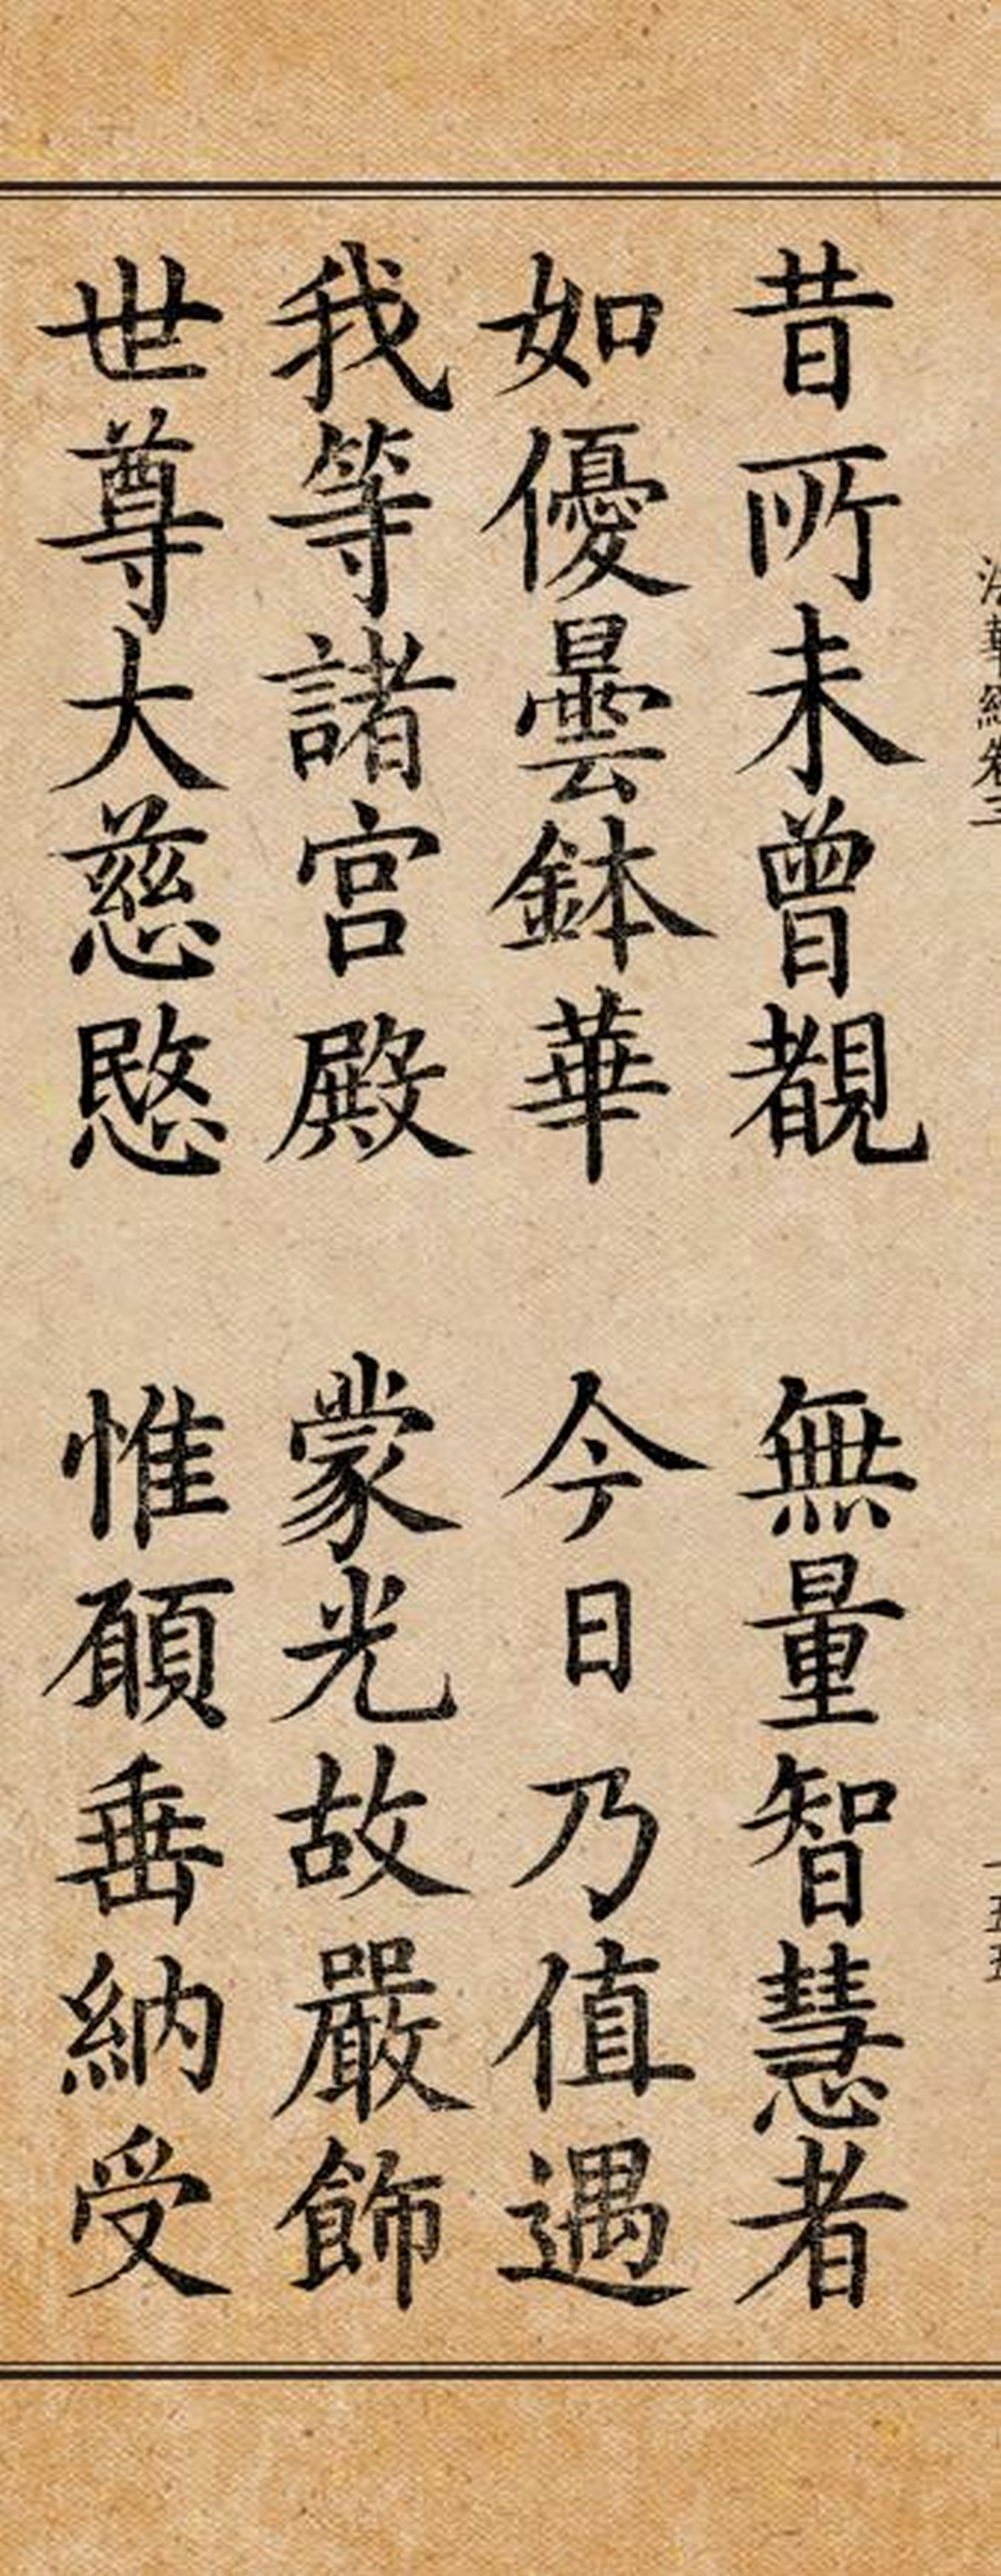 法華經卷三 一五五
昔所未曾覩 無量智慧者
如優曇鉢華 今日乃值遇
我等諸宮殿 蒙光故嚴飾
世尊大慈愍 惟願垂納受